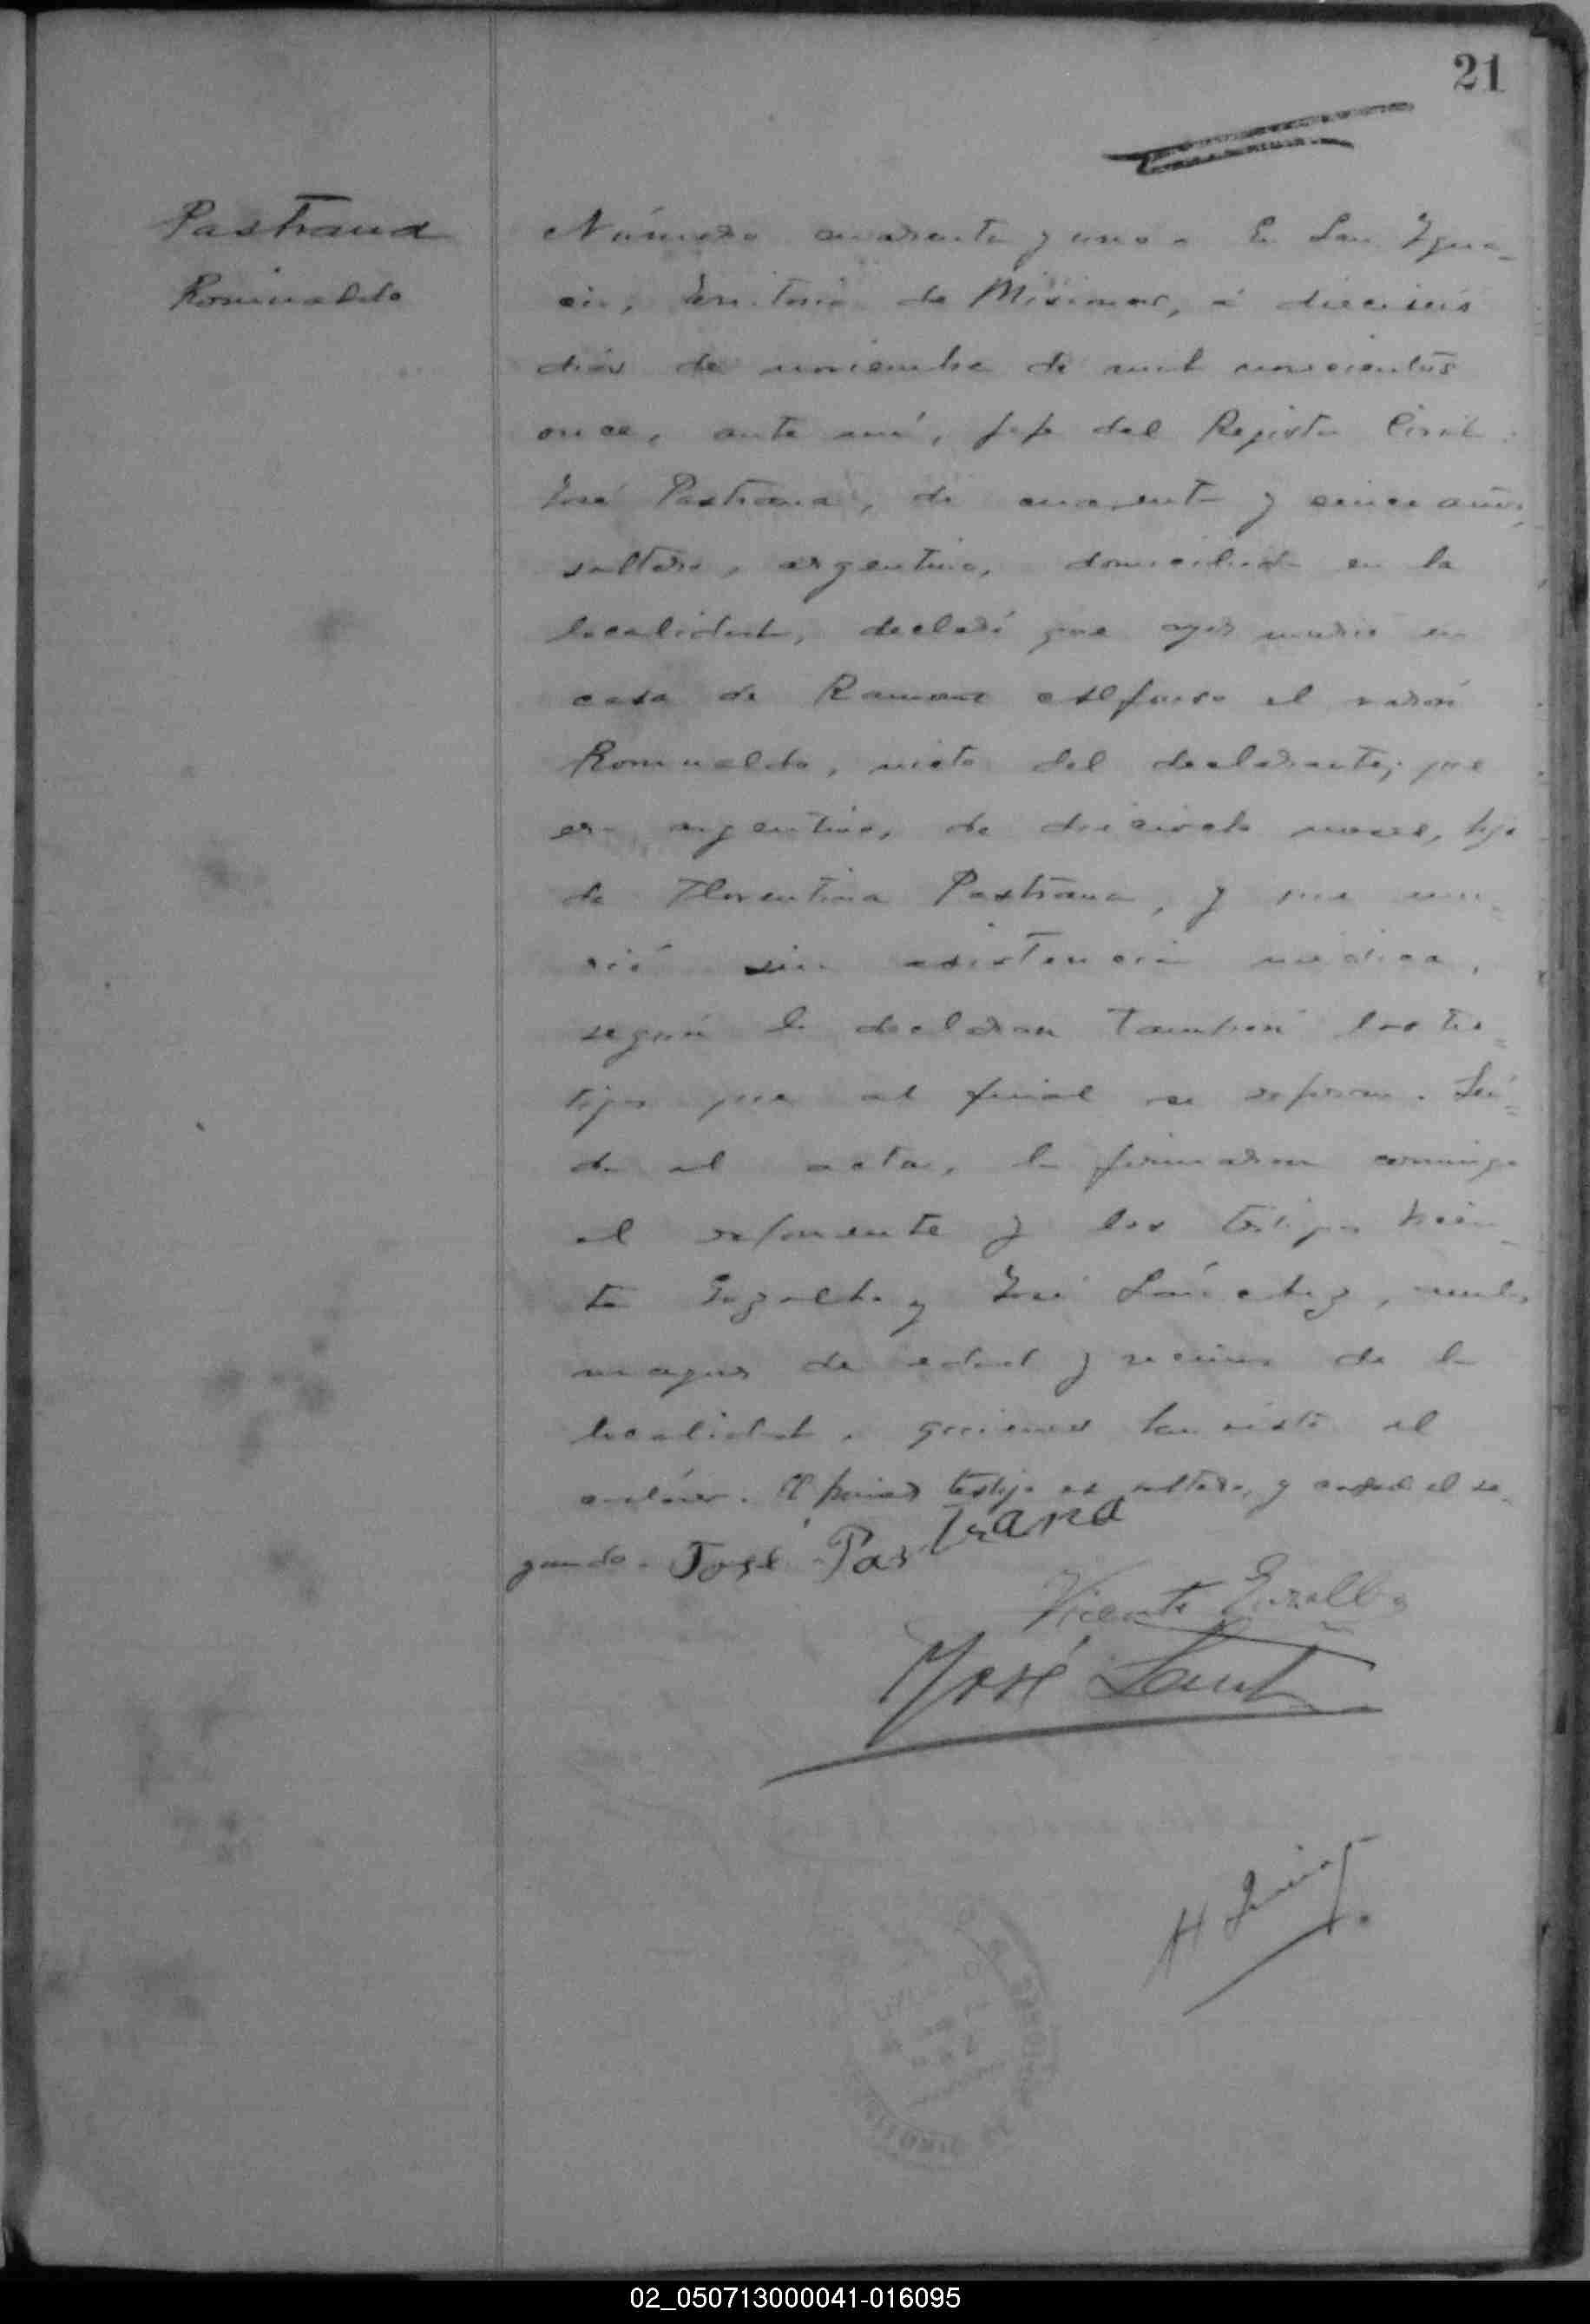 21
Pastrana
Romualdo
Número cuarenta y uno. En San Igna-
cio, territorio de Misiones, á dieciseis
días de noviembre de mil novecientos
once, ante mí, jefe del Registro Civil,
José Pastrana, de cuarenta y cinco años,
soltero, argentino, domiciliado en la
localidad, declaró que ayer murió en
casa de Ramona Alfonso el varón
Romualdo, nieto del declarante; que
era argentino, de dieciocho meses, hijo
de Florentina Pastrana, y que mu-
rió sin asistencia médica,
según lo declaran también los tes-
tigos que al final se refieren. Leí-
da el acta, la firmaron conmigo
el exponente y los testigos Vicen-
te Gozalbo y José Sánchez, ambos
mayores de edad y vecinos de la
localidad, quienes han visto el
cadáver. El primer testigo es soltero, y casado el se-
gundo. José Pastrana
Vicente Gozalbo
José Sanch
H Quirog
02_050713000041-016095